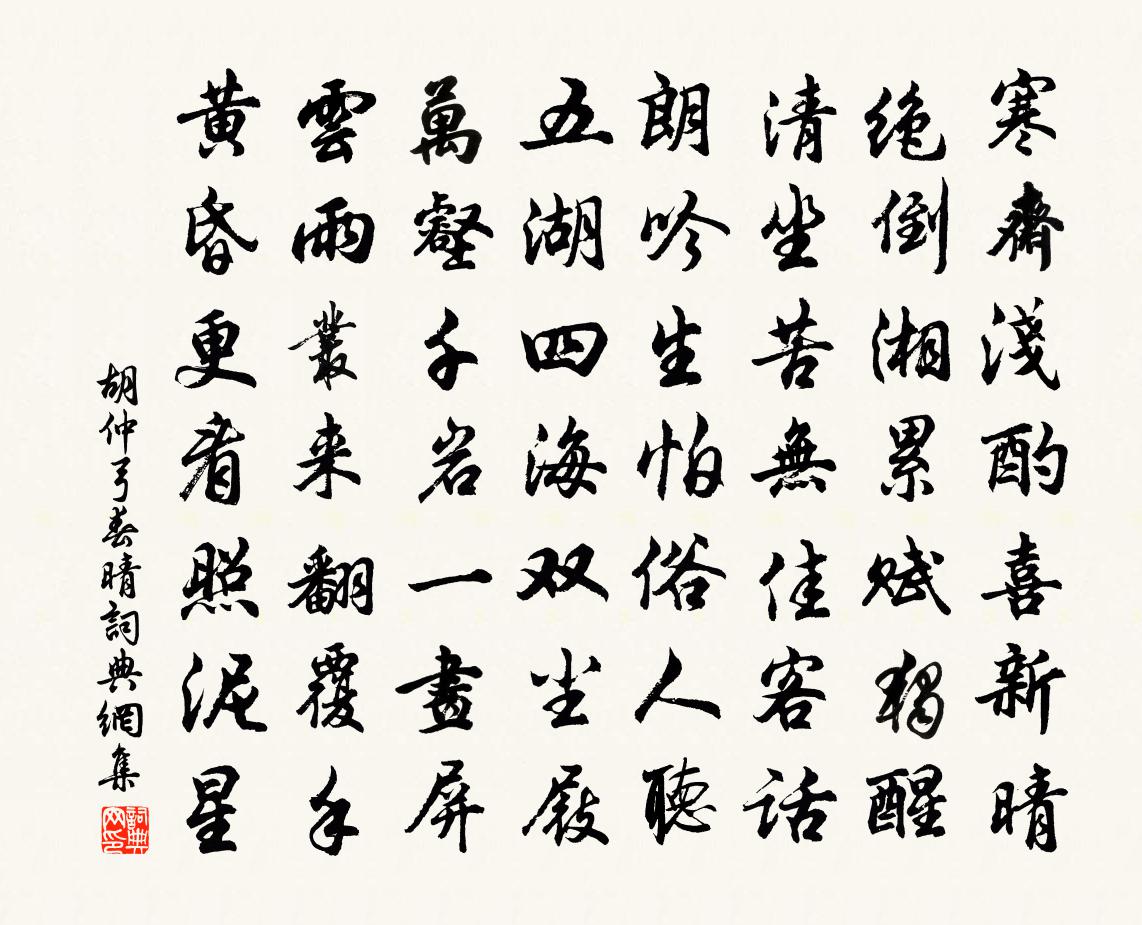 寒齋淺酌喜新晴
绝倒湘累賦獨醒
清坐苦無佳客話
朗吟生怕俗人聽
五湖四海双尘屐
萬壑千岩一畫屏
雲雨叢来翻覆手
黄昏更看照泥星
胡仲弓春晴詞典網集
詞典网印